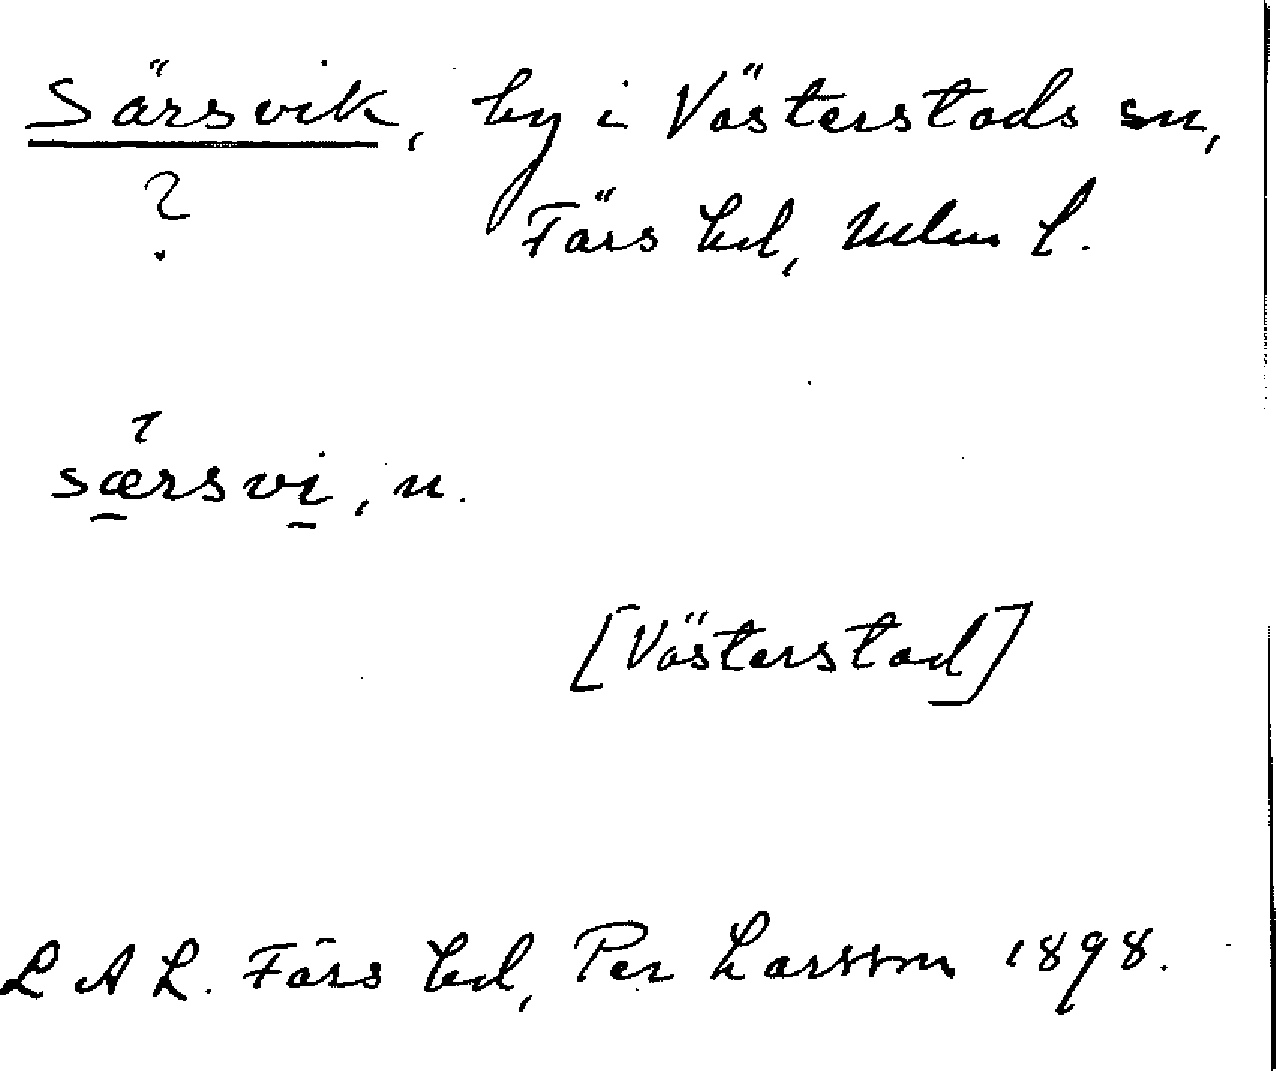 Särsvik, by i Västerstads sn,
?
Färs hd, Malm l.
særsvi, n.
[Västerstad]
L A L. Färs hd, Per Larsson 1898.